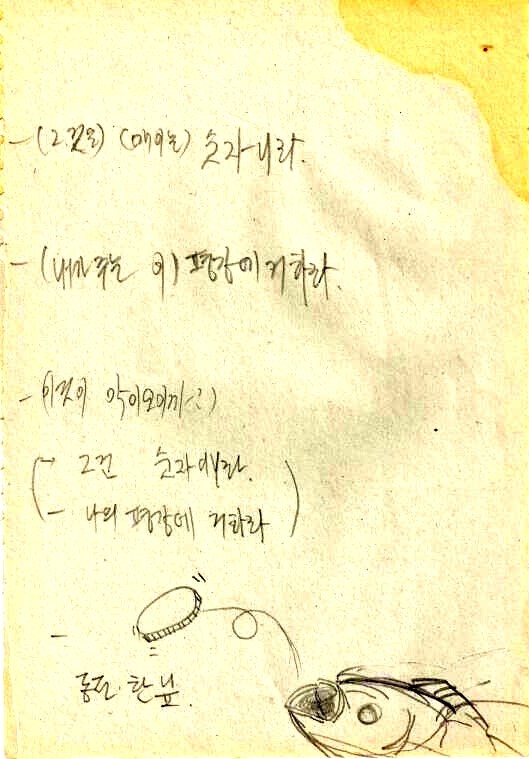 - (그것은) (매이는) 숫자니라.
- (내가 주는 이) 평강에 거하라.
- 이것이 악이오이까(?)
- 그건 숫자니라.
- 나의 평강에 거하라
-
동전 한 닢.